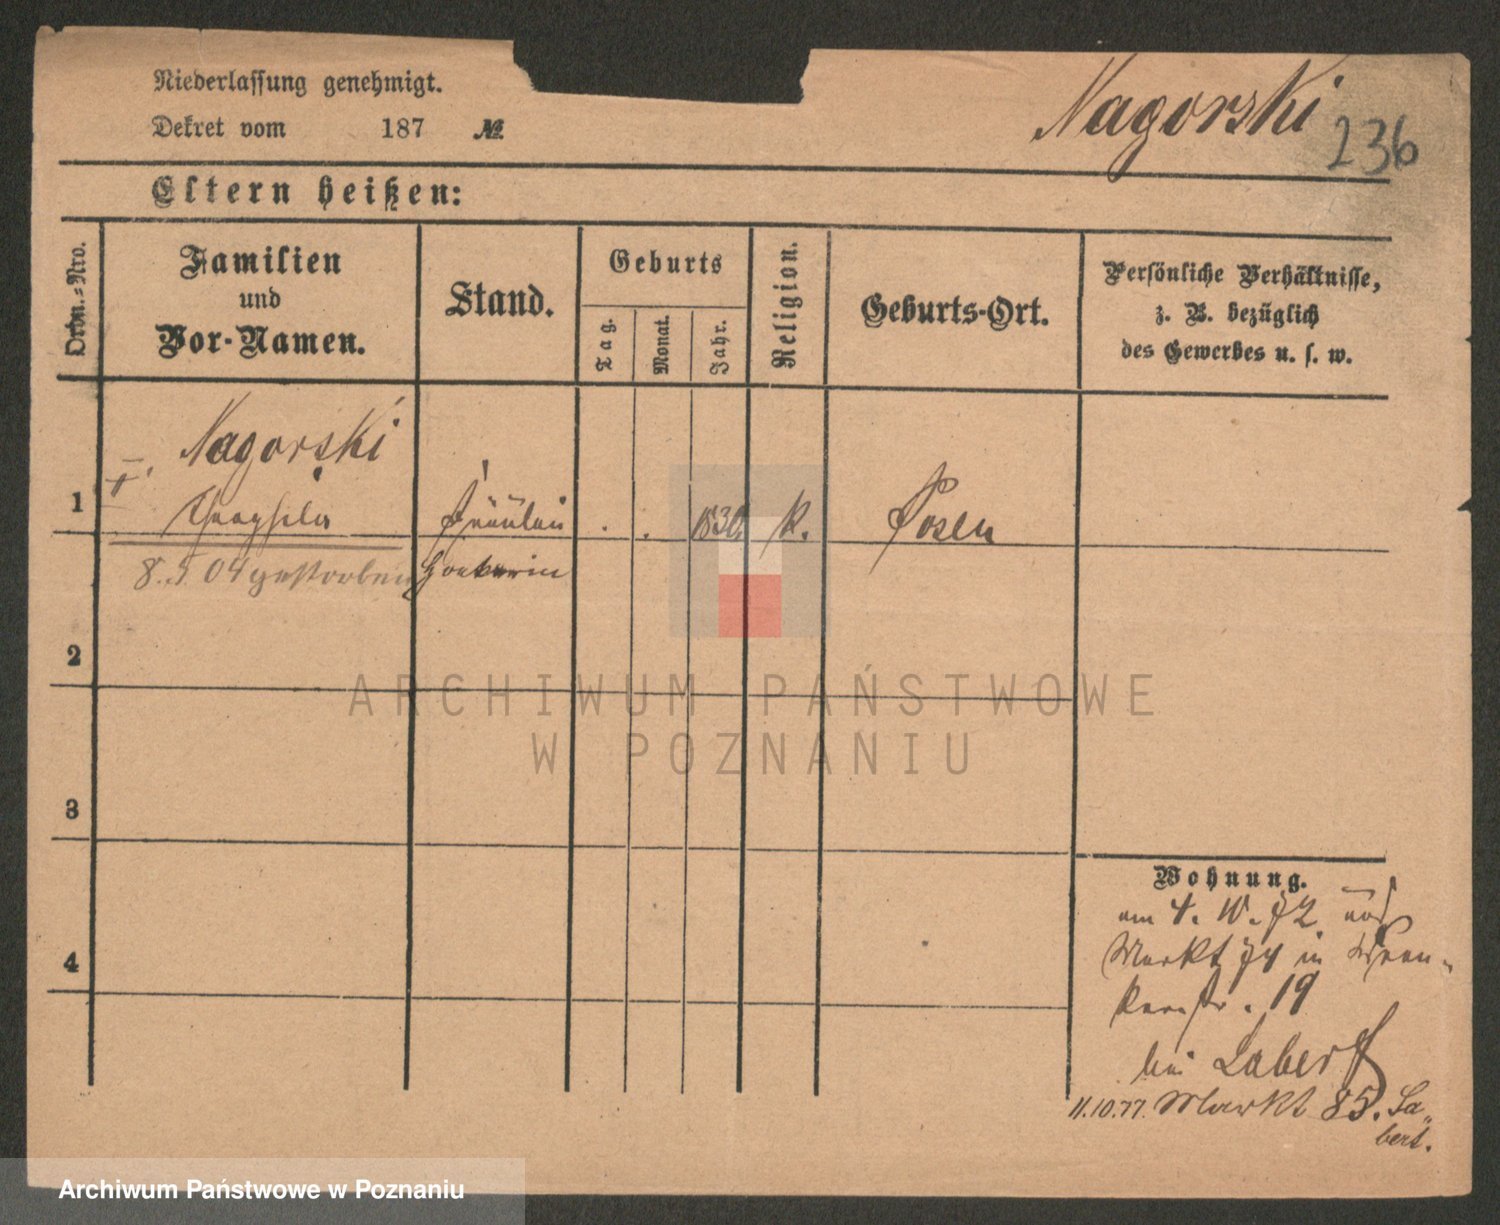 Niederlassung genehmigt.
Dekret vom 187 №
Nagorski
236
Eltern heißen:
Ordn.-Nro.
Familien
und
Vor-Namen.
Stand.
Geburts
Tag.
Monat.
Jahr.
Religion.
Geburts-Ort.
Persönliche Verhältnisse,
z. B. bezüglich
des Gewerbes u. s. w.
1
Nagorski
Fräulein
1830.
K.
Posen
8.5.04 gestorben
2
3
4
Wohnung.
am 4. 10. 72
Markt 74 in
19
bei Labert
11.10.77. Markt 85. La„
bert.
ARCHIWUM PAŃSTWOWE
W POZNANIU
Archiwum Państwowe w Poznaniu